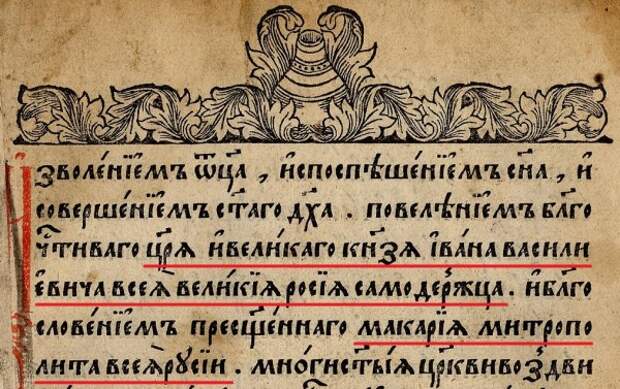 Изволе́нїемъ ѿц҃а , и҆споспѣше́нїемъ сн҃а , и҆
соверше́нїемъ ст҃а́го дх҃а . повелѣ́нїемъ бл҃го
чⷭ҇ти́ваго цр҃ѧ̀ и҆вели́каго кн҃зѧ і҆ва́на васи́лїи
е҆вича всеѧ̀ вели́кїѧ росі́ѧ само де́ржца . и҆бл҃го
слове́нїемъ пресщ҃е́ннаго мака́рїѧ митропо
ли́та всеѧ̀ рꙋсі́и . мно́ги ст҃ы́ѧ цр҃кви воз̾дви